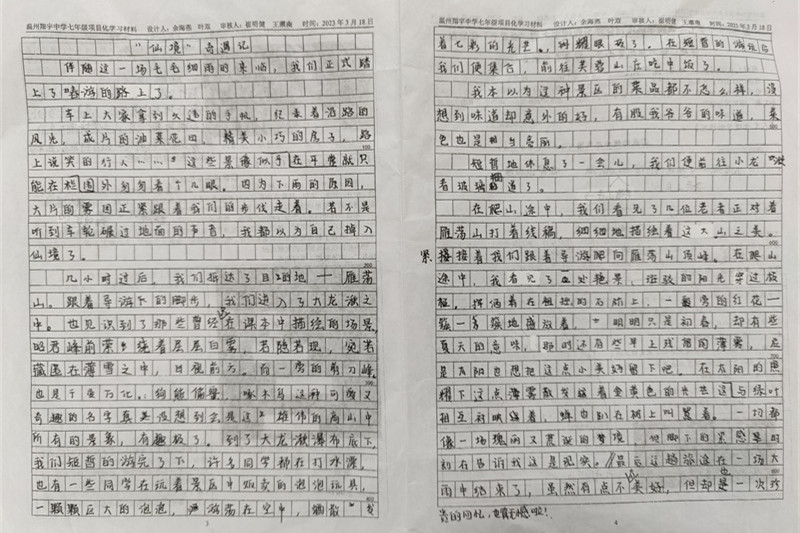 温州翔宇中学七年级项目化学习材料 设计人：余海燕 叶双 审核人：崔明健 王雁南 时间：2023年3月18日
"仙境"奇遇记
伴随这一场毛毛细雨的来临，我们正式踏
上了嗜游的路上了。
车上大家拿到久违的手机，
风光，成片的油菜花田、精美小巧的房子，路
上说笑的行人……这些景像似乎在平常就只
能在校园外匆匆看个几眼。因为下雨的原因，
大片的雾因正紧跟着我们的步伐走着。若不是
听到车轮碾过地面的声音，我都以为自己掉入
仙境了。
几小时过后。我们抵达了目的地——雁荡
山。跟着导游下的脚步，我们进入了大龙湫之
中。也见识到了那些曾经在课本中描绘的场景
昭君峰前萦绕着层层白雾，若隐若现，宛若
藏匿在薄雪之中，
也是千变万化，啄木鸟这种可爱又
有趣的名字真是没想到会是这雄伟的高山中
所有的景象，有趣极了。到了大龙湫瀑布底下，
我们短暂的游玩了下，许多同学都在打水漂，
也有一些同学在玩着景区中贩卖的泡泡玩具，
一颗颗巨大的泡泡，游荡在空中，
3
温州翔宇中学七年级项目化学习材料 设计人：余海燕 叶双 审核人：崔明健 王雁南 时间：2023年3月18日
着七彩的光芒。耀眼极了。在短暂的游玩后
我们便集合，前往芙蓉山庄吃中饭了。
我本以为这种景区的菜品都不怎么样，没
想到味道却意外的好，有股我爷爷的味道，菜
色也是相当亮丽。
短暂地休息了一会儿，我们便前往小龙湫
看玻璃栈道了。
在爬山途中，我们看见了几位老者正对着
雁荡山打着线稿，细细地描绘着这大山之美。
紧接着我们跟着导游爬向雁荡山顶峰。在爬山
途中，我看见了一处艳景，斑驳的阳光穿过枝
桠。挥洒着在粗糙的石砖上，一旁的红花一
簇一簇地盛放着。明明只是初春，却有些
夏天的意味，那时还有些早上残留的薄雾，应
是太阳也想把这点小美好留下吧。在太阳的照
耀下这点薄雾散发着金黄色的光芒与绿叶
相互衬映着，蝉也趴在树上叫嚣着。一切都
像一场瑰丽又荒诞的梦境。但脚下的累感是时
刻在告诉我这是现实。品
雨中结束了，虽然有点不美好，但却也是一次珍
贵的回忆，
4